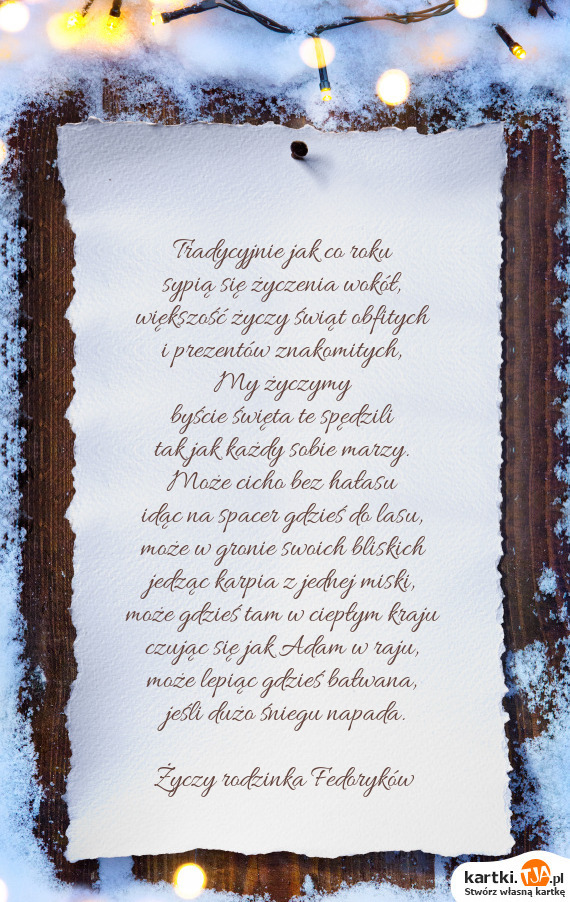 Tradycyjnie jak co roku
sypią się życzenia wokół,
większość życzy świąt obfitych
i prezentów znakomitych,
My życzymy
byście święta te spędzili
tak jak każdy sobie marzy.
Może cicho bez hałasu
idąc na spacer gdzieś do lasu,
może w gronie swoich bliskich
jedząc karpia z jednej miski,
może gdzieś tam w ciepłym kraju
czując się jak Adam w raju,
może lepiąc gdzieś bałwana,
jeśli dużo śniegu napada.
Życzy rodzinka Fedoryków
kartki.TJA.pl
Stwórz własną kartkę